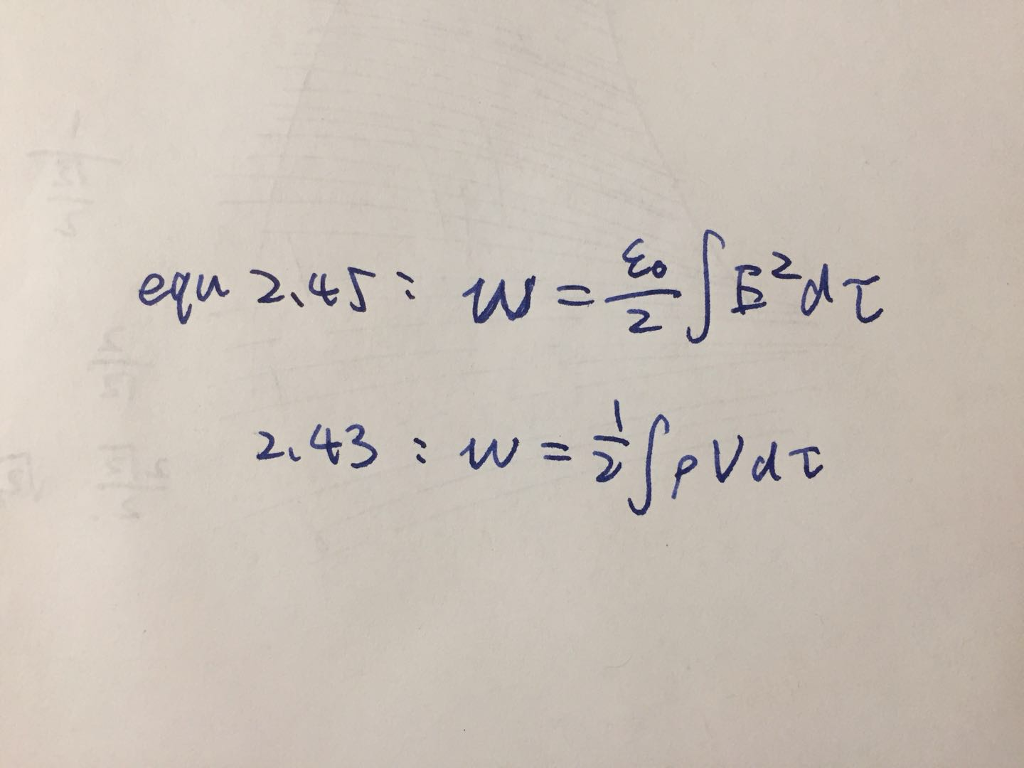 equ 2.45: W = ε₀/2 ∫ E² dτ
2.43 : W = 1/2 ∫ ρ V d τ